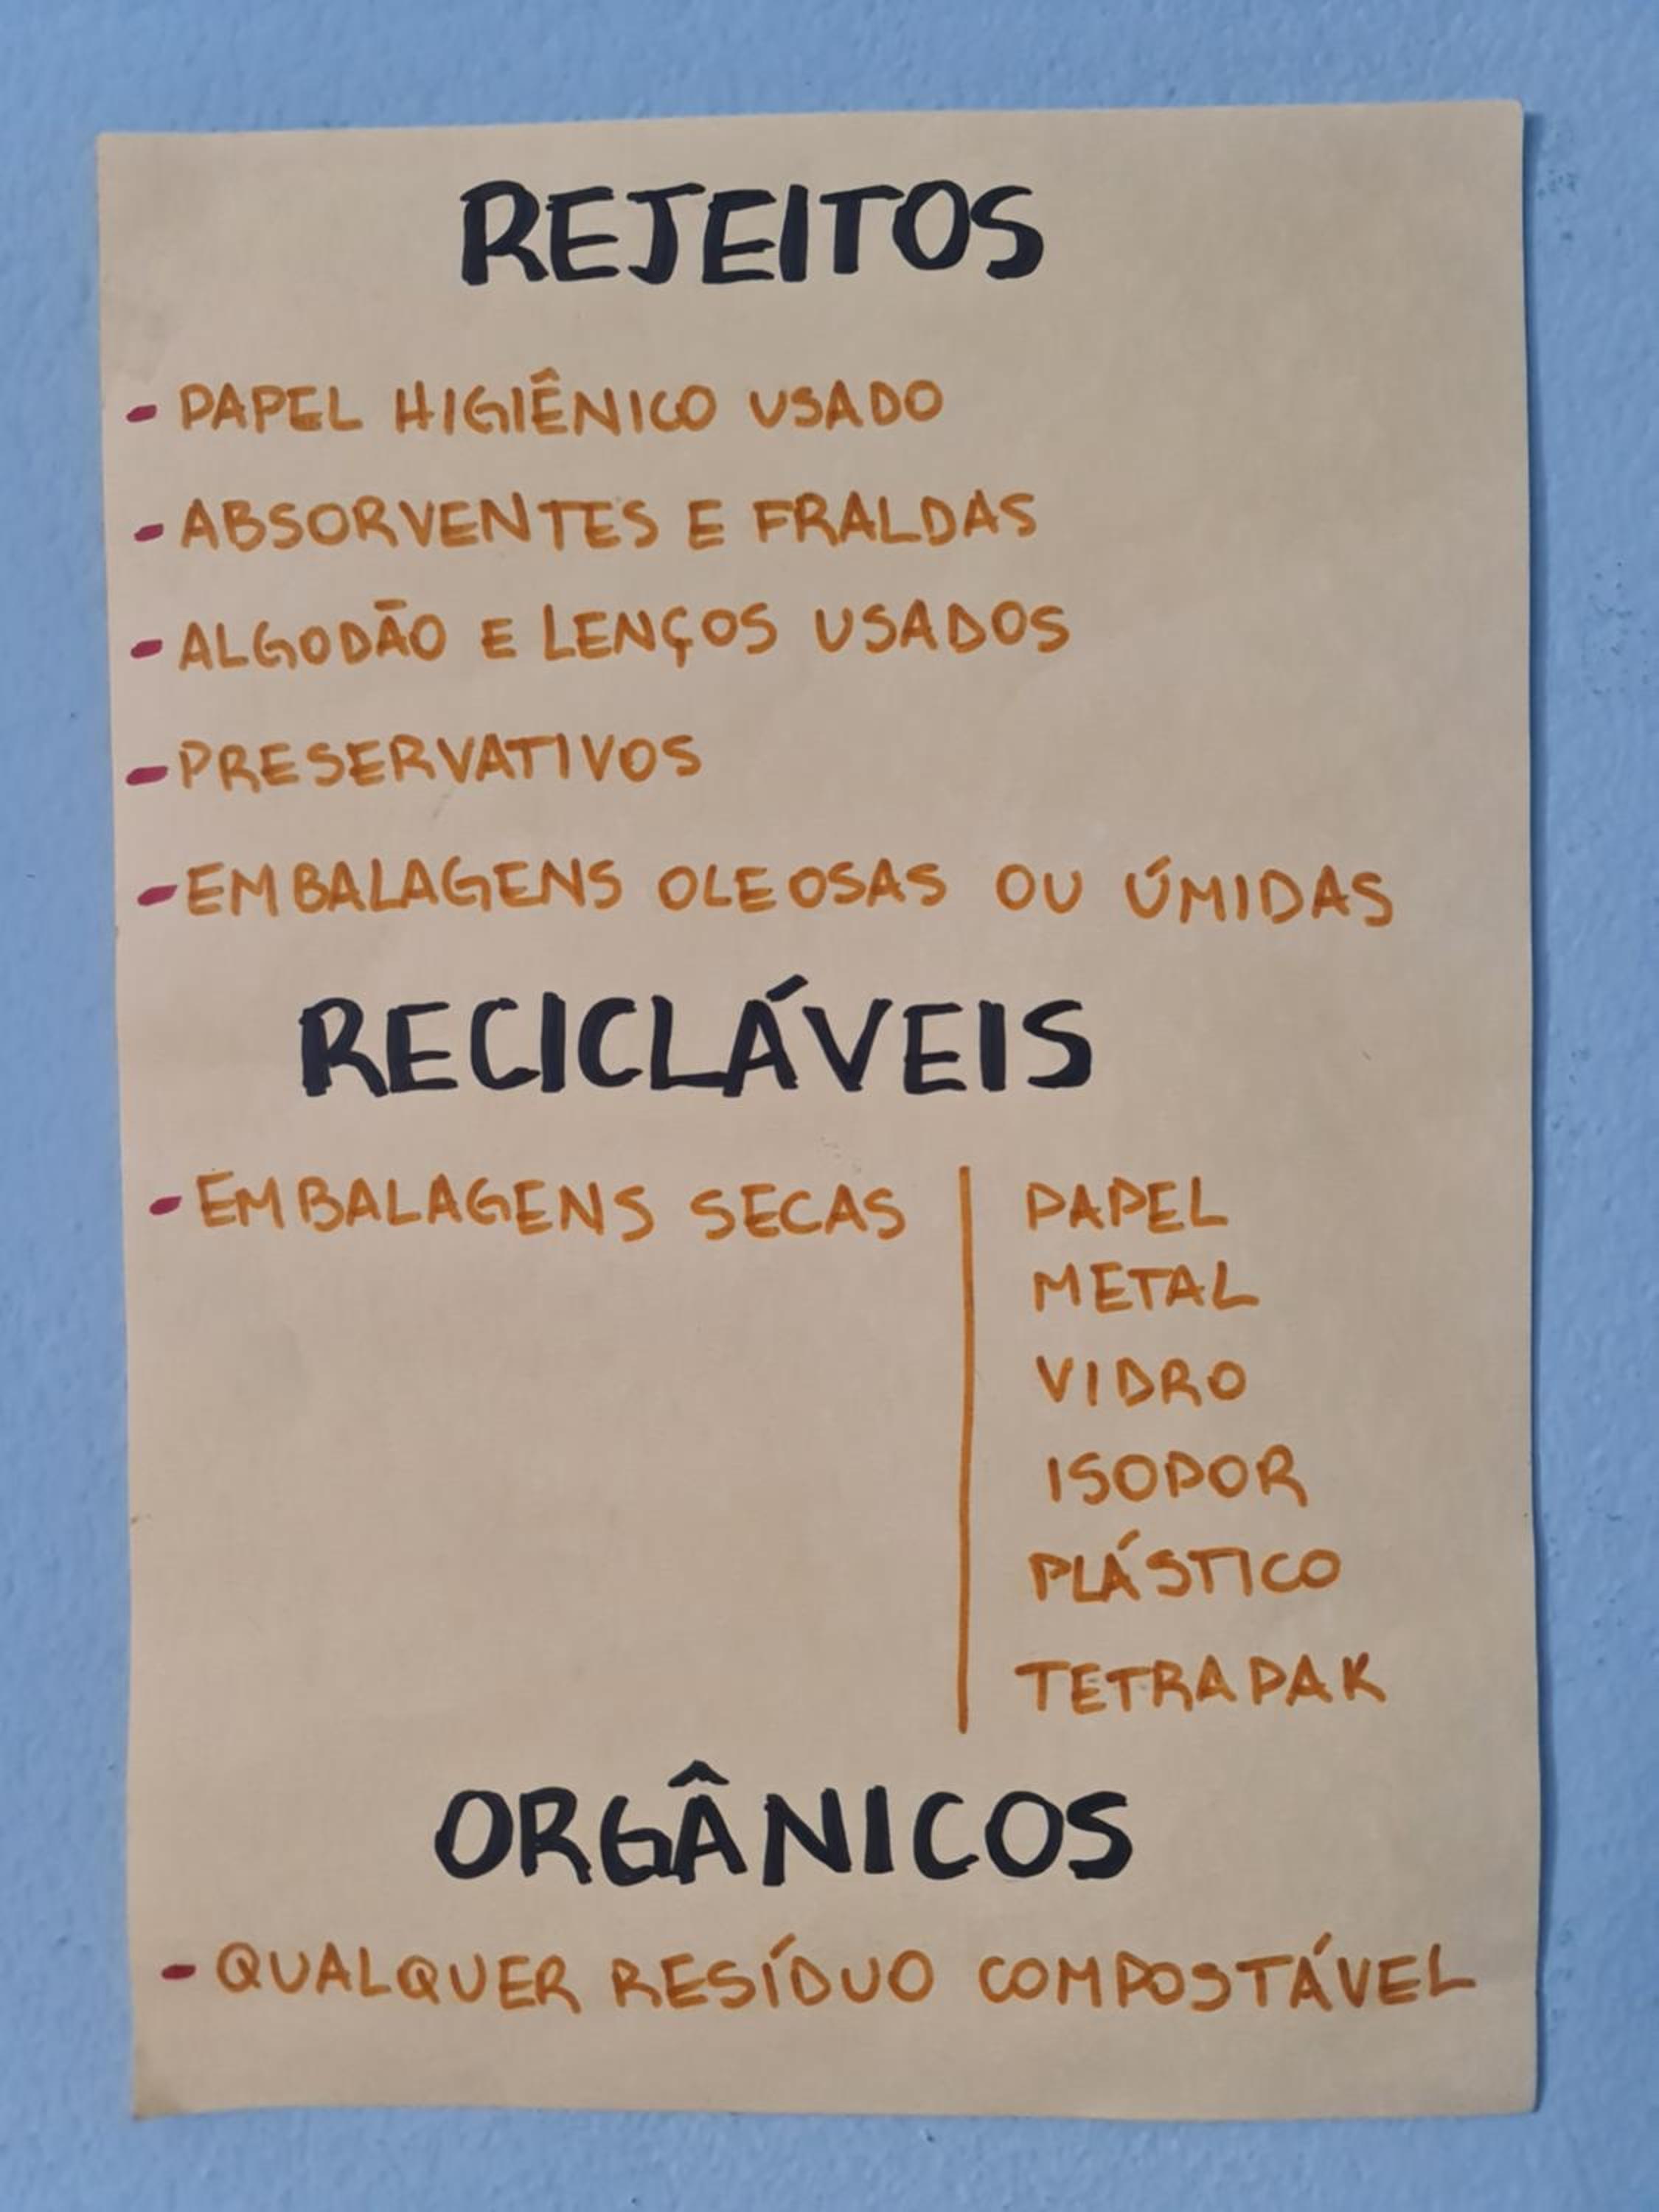 REJEITOS
- PAPEL HIGIÊNICO USADO
- ABSORVENTES E FRALDAS
- ALGODÃO E LENÇOS USADOS
- PRESERVATIVOS
- EMBALAGENS OLEOSAS OU ÚMIDAS
RECICLÁVEIS
- EMBALAGENS SECAS
PAPEL
METAL
VIDRO
ISOPOR
PLÁSTICO
TETRAPAK
ORGÂNICOS
- QUALQUER RESÍDUO COMPOSTÁVEL